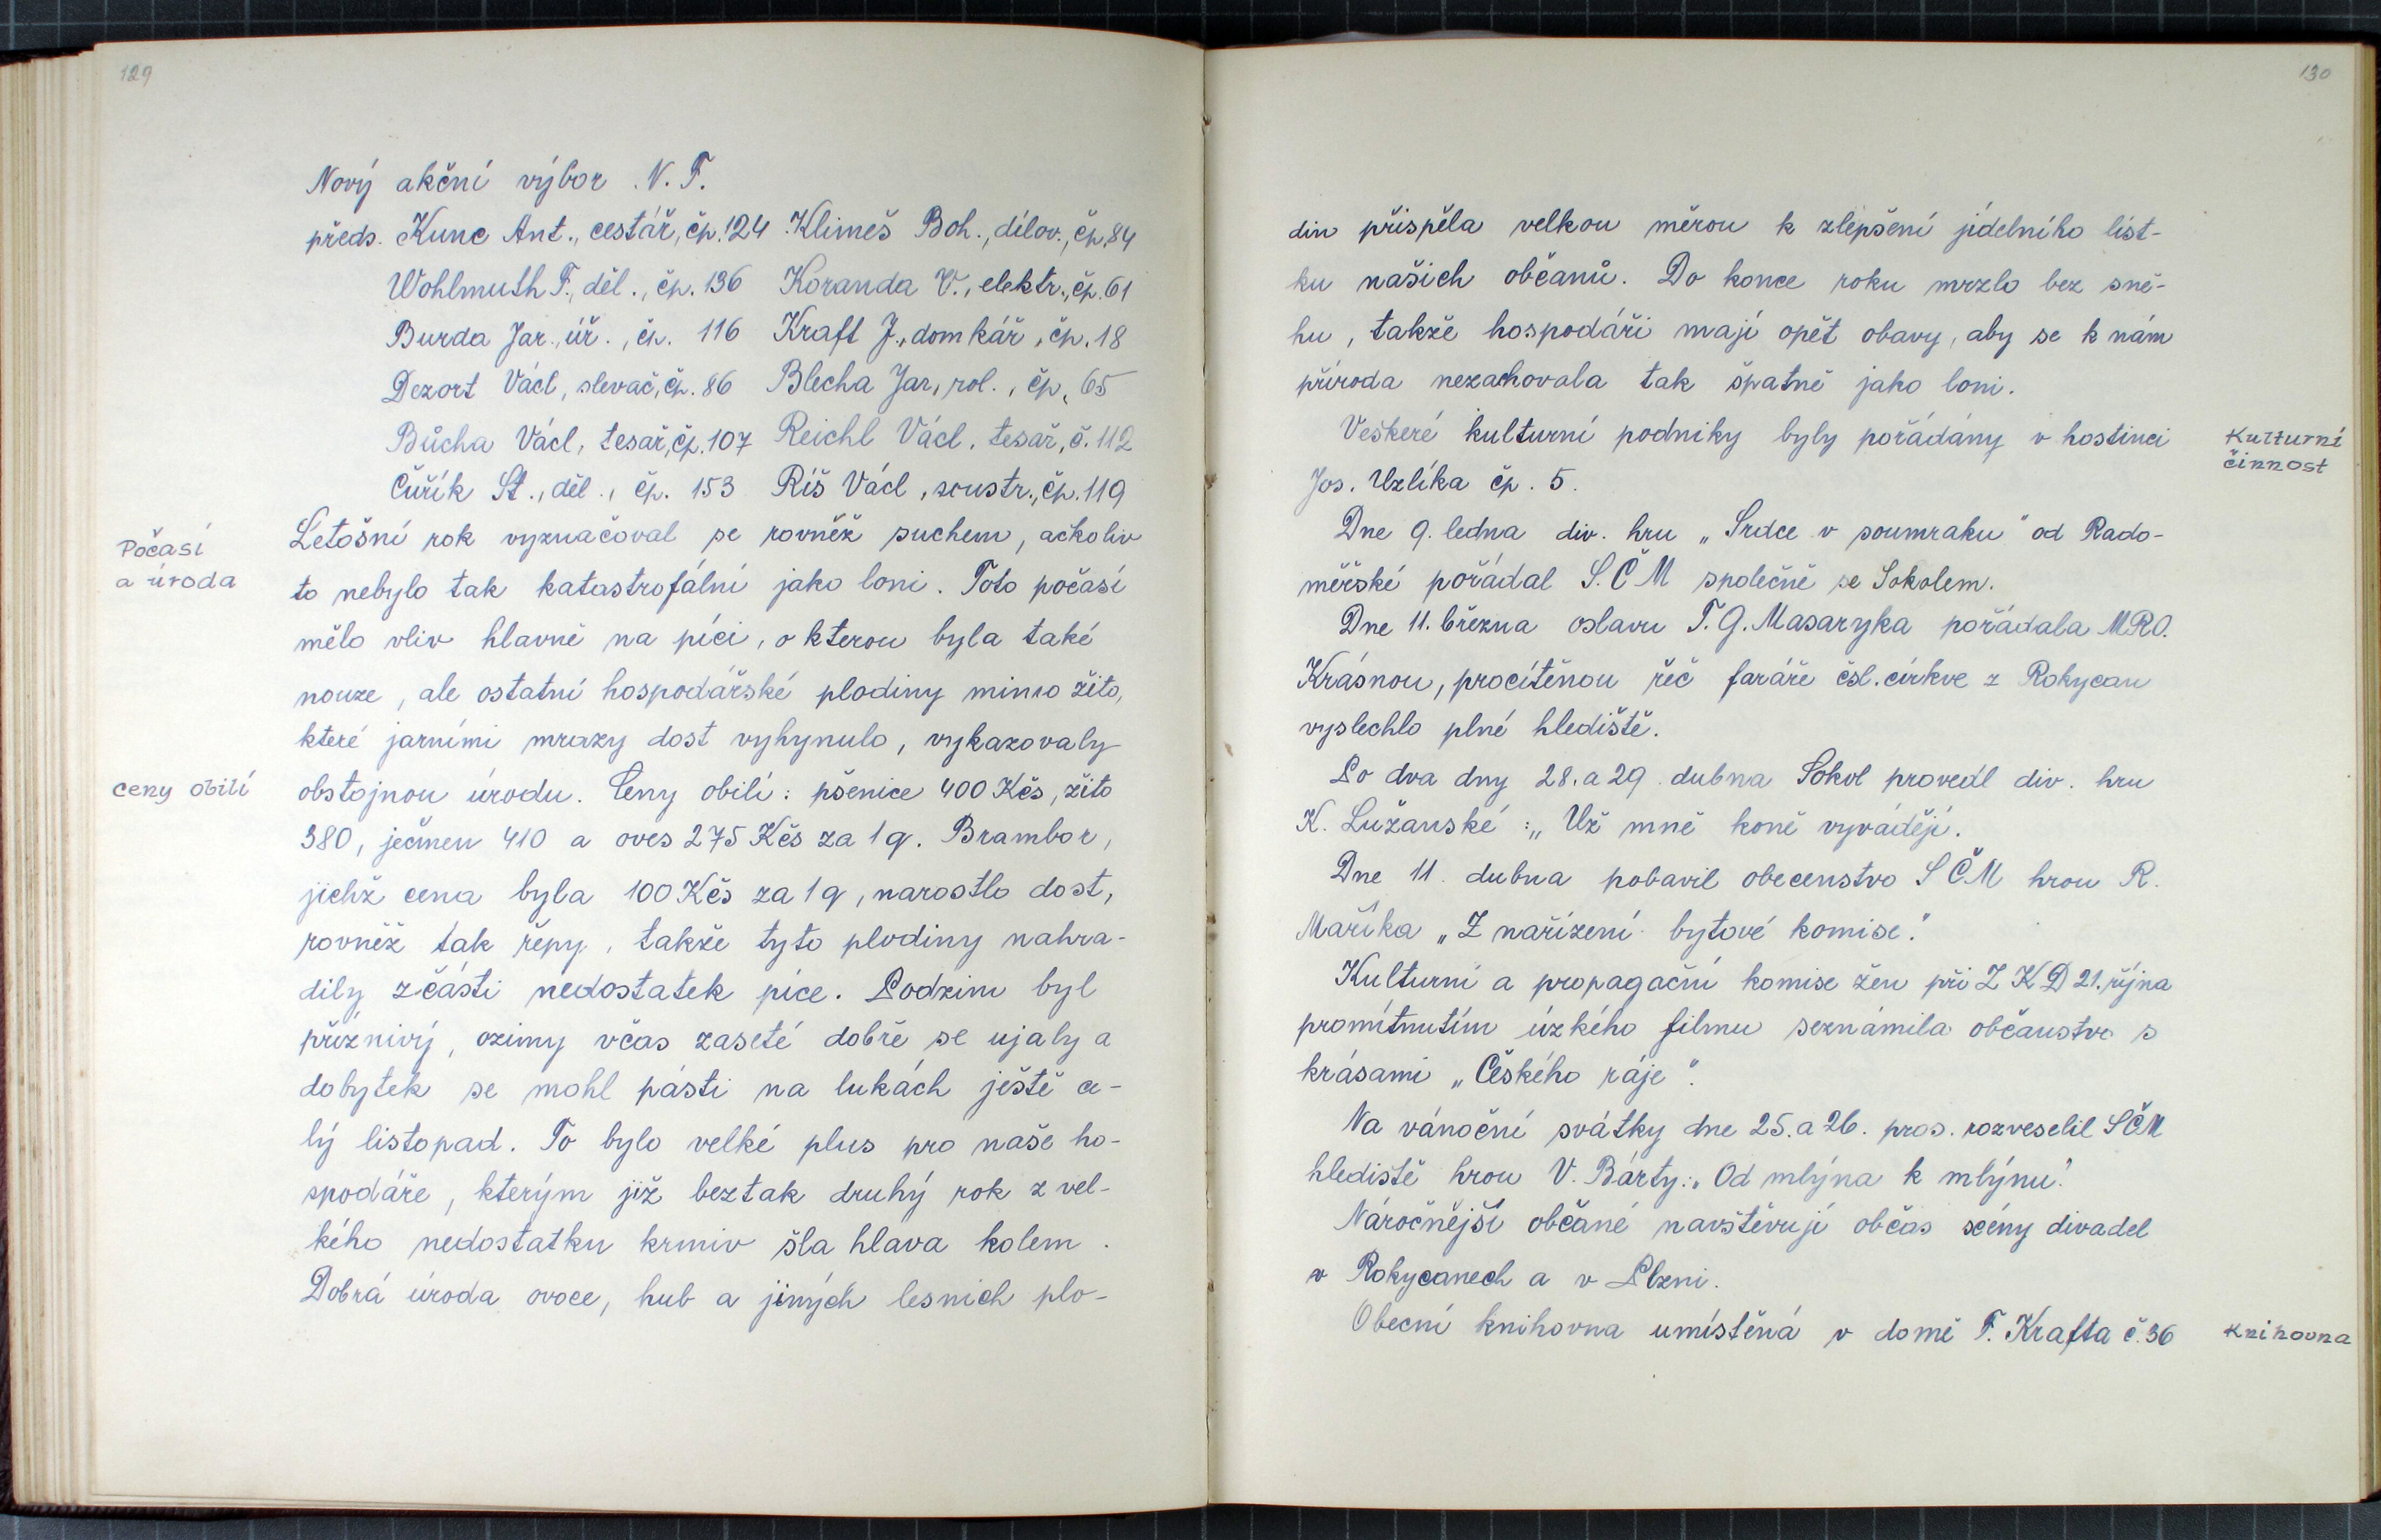 129
Nový akční výbor N. F.
předs. Kunc Ant., cestář, čp. 124 Klimeš Boh., dílov., čp. 84
Wohlmuth F., děl., čp. 136 Koranda V., elektr., čp. 61
Burda Jar., úř., čp. 116 Kraft J., domkář, čp. 18
Dezort Václ, slevač, čp. 86 Blecha Jar, rol., čp. 65
Bůcha Václ, tesař, čp. 107 Reichl Václ. tesař, č. 112
Čuřík St., děl., čp. 153 Ríš Václ, soustr., čp. 119
Počasí
a úroda
Letošní rok vyznačoval se rovněž suchem, ačkoliv
to nebylo tak katastrofální jako loni. Toto počasí
mělo vliv hlavně na píci, o kterou byla také
nouze, ale ostatní hospodářské plodiny mimo žito,
které jarními mrazy dost vyhynulo, vykazovaly
ceny obilí
obstojnou úrodu. Ceny obilí: pšenice 400 Kčs, žito
380, ječmen 410 a oves 275 Kčs za 1 q. Brambor,
jichž cena byla 100 Kčs za 1 q, narostlo dost,
rovněž tak řepy, takže tyto plodiny nahra-
dily zčásti nedostatek píce. Podzim byl
příznivý, ozimy včas zaseté dobře se ujaly a
dobytek se mohl pásti na lukách ještě ce-
lý listopad. To bylo velké plus pro naše ho-
spodáře, kterým již beztak druhý rok z vel-
kého nedostatku krmiv šla hlava kolem.
Dobrá úroda ovoce, hub a jiných lesních plo-
130
din přispěla velkou měrou k zlepšení jídelního líst-
ku našich občanů. Do konce roku mrzlo bez sně-
hu, takže hospodáři mají opět obavy, aby se k nám
příroda nezachovala tak špatně jako loni.
Veškeré kulturní podniky byly pořádány v hostinci
Kulturní
činnost
Jos. Uzlíka čp. 5.
Dne 9. ledna div. hru „Srdce v soumraku" od Rado-
měřské pořádal S.ČM společně se Sokolem.
Dne 11. března oslavu T. G. Masaryka pořádala MRO.
Krásnou, procítěnou řeč faráře čsl. církve z Rokycan
vyslechlo plné hlediště.
Po dva dny 28. a 29. dubna Sokol provedl div. hru
K. Lužanské: „Už mně koně vyvádějí.
Dne 11. dubna pobavil obecenstvo SČM hrou R.
Maříka „Z nařízení bytové komise."
Kulturní a propagační komise žen při Z K D 21. října
promítnutím úzkého filmu seznámila občanstvo s
krásami „Českého ráje".
Na vánoční svátky dne 25. a 26. pros. rozveselil SČM
hlediště hrou V. Bárty: „Od mlýna k mlýnu."
Náročnější občané navštěvují občas scény divadel
v Rokycanech a v Plzni.
Obecní knihovna umístěná v domě F. Krafta č. 36
Knihovna